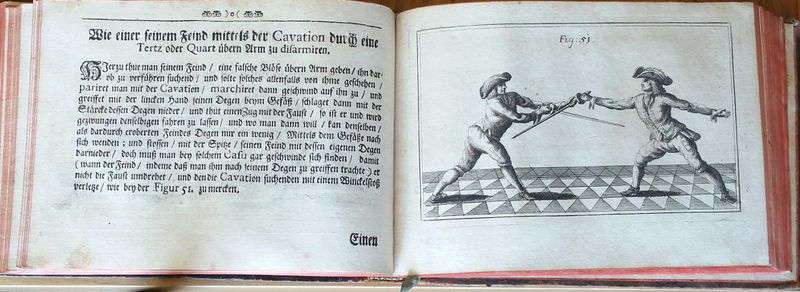 Wie einer seinem Feind mittels der Cavation durch eine
Tertz oder Quart übern Arm zu disarmiren.
HJerzu thue man seinem Feind / eine falsche Blöse übern Arm geben / ihn dar-
ob zu verführen suchend / und solte solches allenfalls von ihme geschehen /
pariret man mit der Cavation / marchiret dann geschwind auf ihn zu / und
greiffet mit der lincken Hand seinen Degen beym Gefäß / schlaget dann mit der
Stärcke dessen Degen nieder / und thut einen Zug mit der Faust / so ist er und wird
gezwungen denselbigen fahren zu lassen / und wo man dann will / kan denselben /
als dardurch eroberten Feindes Degen nur ein wenig / Mittels dem Gefäße nach
sich wenden ; und stossen / mit der Spitze / seinen Feind mit dessen eigenen Degen
darnieder / doch muß man bey solchem Casu gar geschwinde sich finden / damit
( wann der Feind / indeme daß man ihn nach seinem Degen zu greiffen trachte ) er
nicht die Faust umdrehet / und den die Cavation suchenden mit einem Winckelstoß
verletze / wie bey der Figur 51. zu mercken.
Einen
Fig: 51.